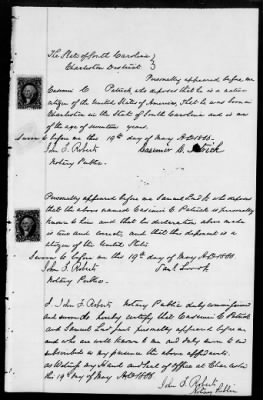 The State of South Carolina
Charleston District
Personally appeared before me
Casimir C Patrick who deposes that he is a native
citizen of the United States of America, that he was born in
Charleston in the State of South Carolina and is now
of the age of seventeen years.
Sworn to before me this 19th day of May A.D.
John F. Roberts Casimir C. Patrick
Notary Public.
Personally appeared before me Samuel Lord Jr who deposes
that the above named Casimir C Patrick is personally
known to him and that his declaration above made
is true and correct, and that this deponent is a
citizen of the United States
Sworn to before me this 19th day of May A.D.
John F. Roberts Saml Lord Jr
Notary Public.
I John F. Roberts Notary Public duly commissioned
and sworn do hereby certify that Casimir C Patrick
and Samuel Lord Jr personally appeared before me
and who are well known to me and duly sworn to and
subscribed in my presence the above affidavits.
Witness my Hand and Seal of office at Charleston
this 19th day of May A.D.
John F. Roberts
Notary Public